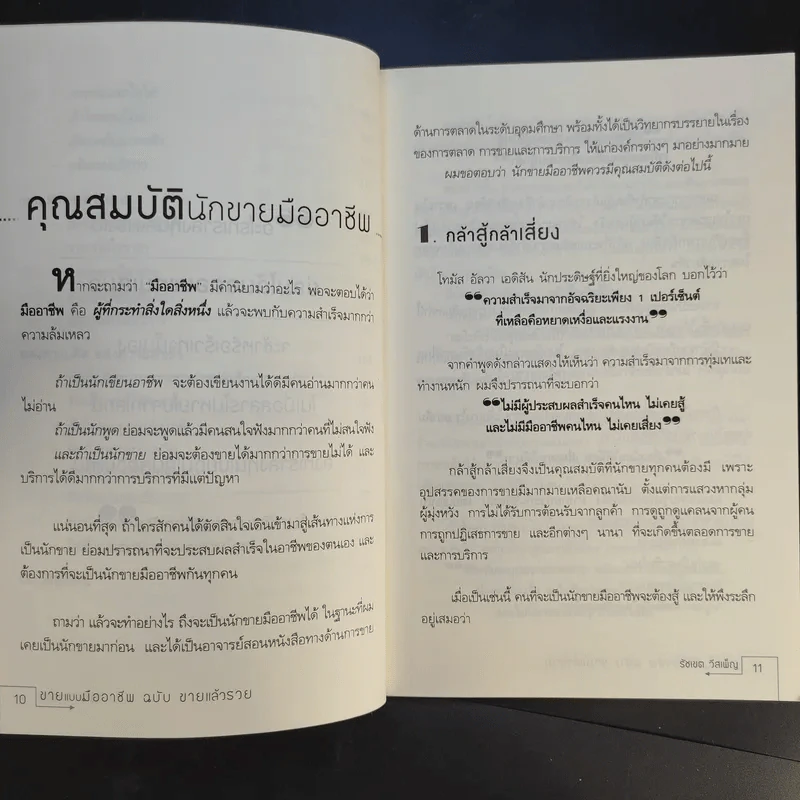 คุณสมบัตินักขายมืออาชีพ
หากจะถามว่า "มืออาชีพ" มีคำนิยามว่าอะไร พอจะตอบได้ว่า
มืออาชีพ คือ ผู้ที่กระทำสิ่งใดสิ่งหนึ่ง แล้วจะพบกับความสำเร็จมากกว่า
ความล้มเหลว
ถ้าเป็นนักเขียนอาชีพ จะต้องเขียนงานได้ดีมีคนอ่านมากกว่าคน
ไม่อ่าน
ถ้าเป็นนักพูด ย่อมจะพูดแล้วมีคนสนใจฟังมากกว่าคนที่ไม่สนใจฟัง
และถ้าเป็นนักขาย ย่อมจะต้องขายได้มากกว่าการขายไม่ได้ และ
บริการได้ดีมากกว่าการบริการที่มีแต่ปัญหา
แน่นอนที่สุด ถ้าใครสักคนได้ตัดสินใจเดินเข้ามาสู่เส้นทางแห่งการ
เป็นนักขาย ย่อมปรารถนาที่จะประสบผลสำเร็จในอาชีพของตนเอง และ
ต้องการที่จะเป็นนักขายมืออาชีพกันทุกคน
ถามว่า แล้วจะทำอย่างไร ถึงจะเป็นนักขายมืออาชีพได้ ในฐานะที่ผม
เคยเป็นนักขายมาก่อน และได้เป็นอาจารย์สอนหนังสือทางด้านการขาย
10 ขายแบบมืออาชีพ ฉบับ ขายแล้วรวย
ด้านการตลาดในระดับอุดมศึกษา พร้อมทั้งได้เป็นวิทยากรบรรยายในเรื่อง
ของการตลาด การขายและการบริการ ให้แก่องค์กรต่างๆ มาอย่างมากมาย
ผมขอตอบว่า นักขายมืออาชีพควรมีคุณสมบัติดังต่อไปนี้
1. กล้าสู้กล้าเสี่ยง
โทมัส อัลวา เอดิสัน นักประดิษฐ์ที่ยิ่งใหญ่ของโลก บอกไว้ว่า
"ความสำเร็จมาจากอัจฉริยะเพียง 1 เปอร์เซ็นต์
ที่เหลือคือหยาดเหงื่อและแรงงาน"
จากคำพูดดังกล่าวแสดงให้เห็นว่า ความสำเร็จมาจากการทุ่มเทและ
ทำงานหนัก ผมจึงปรารถนาที่จะบอกว่า
"ไม่มีผู้ประสบผลสำเร็จคนไหน ไม่เคยสู้
และไม่มีมืออาชีพคนไหน ไม่เคยเสี่ยง"
กล้าสู้กล้าเสี่ยงจึงเป็นคุณสมบัติที่นักขายทุกคนต้องมี เพราะ
อุปสรรคของการขายมีมากมายเหลือคณานับ ตั้งแต่การแสวงหากลุ่ม
ผู้มุ่งหวัง การไม่ได้รับการต้อนรับจากลูกค้า การดูถูกดูแคลนจากผู้คน
การถูกปฏิเสธการขาย และอีกต่างๆ นานา ที่จะเกิดขึ้นตลอดการขาย
และการบริการ
เมื่อเป็นเช่นนี้ คนที่จะเป็นนักขายมืออาชีพจะต้องสู้ และให้พึงระลึก
อยู่เสมอว่า
รัชเขต วีสเพ็ญ 11